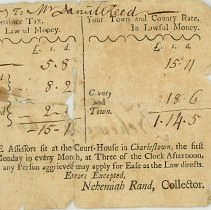 To Mr. Daniel Reed
Province Tax, Your Town and County Rate,
Lawful Money. In Lawful Money.
£. s. d. £. s. d.
5.8 15.11
8.2 County
2 and 18.6
15.1 Town. 1.14.5
E Assessors sit at the Court-House in Charlestown, the first
Monday in every Month, at Three of the Clock Afternoon,
any Person aggrieved may apply for Ease as the Law directs.
Errors Excepted,
Nehemiah Rand, Collector.